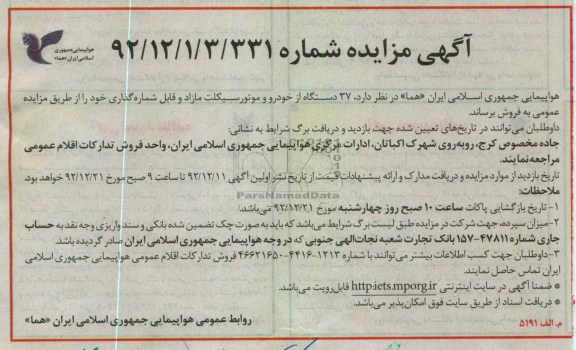 هواپیمایی جمهوری
اسلامی ایران «هما»
آگهی مزایده شماره ۹۲/۱۲/۱/۳/۳۳۱
هواپیمایی جمهوری اسلامی ایران «هما» در نظر دارد، ۳۷ دستگاه از خودرو و موتورسیکلت مازاد و قابل شماره‌گذاری خود را از طریق مزایده
عمومی به فروش برساند.
داوطلبان می‌توانند در تاریخ‌های تعیین شده جهت بازدید و دریافت برگ شرایط به نشانی:
جاده مخصوص کرج، روبه‌روی شهرک اکباتان، ادارات مرکزی هواپیمایی جمهوری اسلامی ایران، واحد فروش تدارکات اقلام عمومی
مراجعه نمایند.
تاریخ بازدید از موارد مزایده و دریافت مدارک و ارائه پیشنهادات قیمت از تاریخ نشر اولین آگهی ۹۲/۱۲/۱۱ تا ساعت ۹ صبح مورخ ۹۲/۱۲/۲۱ خواهد بود.
ملاحظات:
۱- تاریخ بازگشایی پاکات ساعت ۱۰ صبح روز چهارشنبه مورخ ۹۲/۱۲/۲۱ می‌باشد.
۲- میزان سپرده، جهت شرکت در مزایده طبق لیست برگ شرایط می‌باشد که باید به صورت چک تضمین شده بانکی و سند واریزی وجه نقد به حساب
جاری شماره ۴۷۸۱۱-۱۵۷ بانک تجارت شعبه نجات‌الهی جنوبی که در وجه هواپیمایی جمهوری اسلامی ایران صادر گردیده باشد.
۳- داوطلبان جهت کسب اطلاعات بیشتر می‌توانند با شماره ۴۴۱۶۰۱۲۱۳-۴۶۶۲۱۶۵۰ فروش تدارکات اقلام عمومی هواپیمایی جمهوری اسلامی
ایران تماس حاصل نمایند.
* ضمنا آگهی در سایت اینترنتی http:iets.mporg.ir قابل رویت می‌باشد.
* دریافت اسناد از طریق سایت فوق امکان‌پذیر می‌باشد.
روابط عمومی هواپیمایی جمهوری اسلامی ایران «هما»
م. الف ۵۱۹۱
ParsNamadData